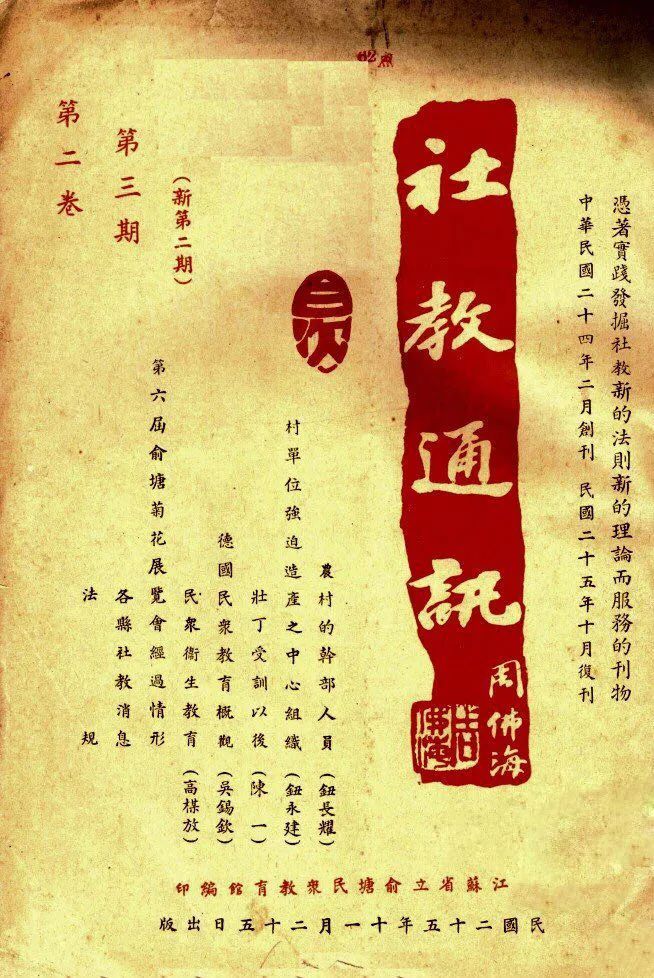 憑著實踐發掘社教新的法則新的理論而服務的刊物
中華民國二十四年二月創刊 民國二十五年十月復刊
社教通訊
周佛海
農村的幹部人員(鈕長耀)
村單位強迫造產之中心組織(鈕永建)
壯丁受訓以後(陳一)
德國民衆教育概觀(吳錫欽)
民衆衞生教育(高楳放)
第六屆俞塘菊花展覽會經過情形
各縣社教消息
法規
(新第二期)
第三期
第二卷
江蘇省立俞塘民衆教育館編印
民國二十五年十一月二十五日出版